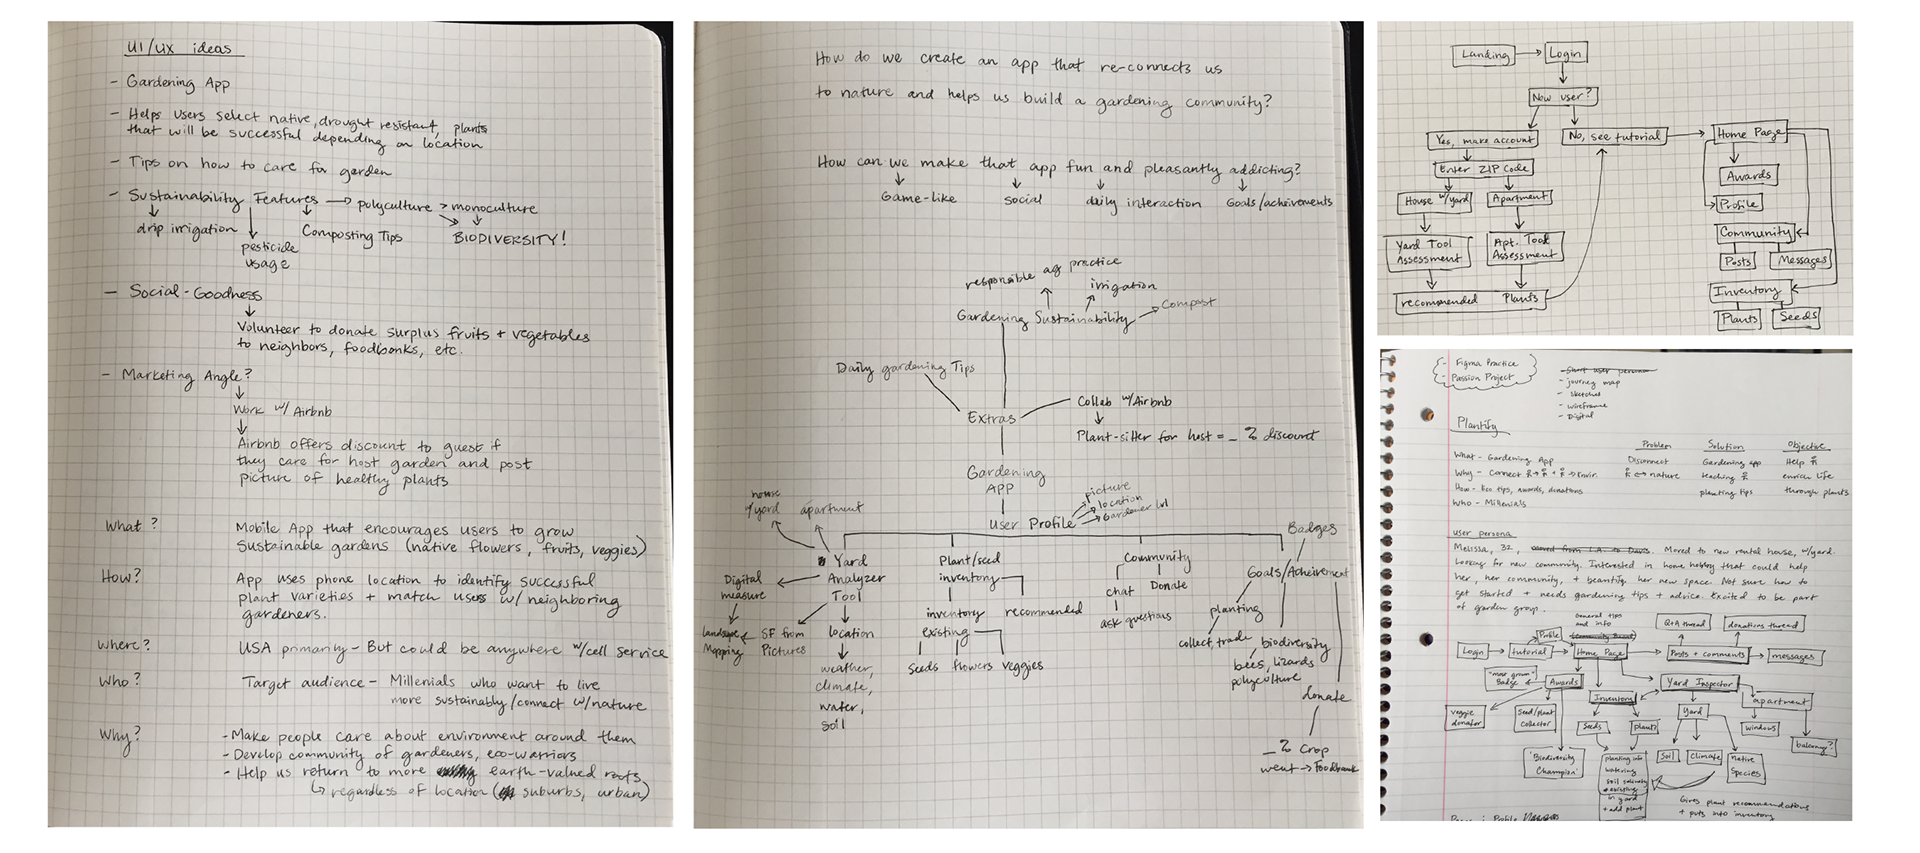 UI/UX ideas
- Gardening App
- Helps users select native, drought resistant, plants
that will be successful depending on location
- Tips on how to care for garden
- Sustainability Features → polyculture > monoculture
drip irrigation
pesticide
usage
Composting Tips
BIODIVERSITY!
- Social-Goodness
Volunteer to donate surplus fruits + vegetables
to neighbors, foodbanks, etc.
- Marketing Angle?
Work w/ Airbnb
Airbnb offers discount to guest if
they care for host garden and post
picture of healthy plants
What? Mobile App that encourages users to grow
sustainable gardens (native flowers, fruits, veggies)
How? App uses phone location to identify successful
plant varieties + match users w/ neighboring
gardeners.
Where? USA primarily - But could be anywhere w/cell service
Who? Target audience - Millenials who want to live
more sustainably/connect w/nature
Why? - Make people care about environment around them
- Develop community of gardeners, eco-warriors
- Help us return to more earth-valued roots
↳ regardless of location ( suburbs, urban)
How do we create an app that re-connects us
to nature and helps us build a gardening community?
How can we make that app fun and pleasantly addicting?
Game-like
social
daily interaction
Goals/acheivements
responsible ag practice
irrigation
Compost
Gardening Sustainability
Daily gardening Tips
Extras
Collab w/Airbnb
Plant-sitter for host = _ % discount
Gardening
APP
User Profile
picture
location
Gardener lvl
house
w/yard
apartment
Yard
Analyzer
Tool
Digital
measure
Landscape
Mapping
SF from
Pictures
location
weather,
climate,
water,
soil
Plant/seed
inventory
inventory
existing
recommended
seeds
flowers
veggies
Community
chat
ask questions
Donate
Badges
Goals/Acheivement
planting
collect, trade
biodiversity
bees, lizards
polyculture
donate
_ % crop
went → Foodbank
Landing
Login
New user?
Yes, make account
No, see tutorial
Enter ZIP Code
House w/yard
Apartment
Yard Tool
Assessment
Apt. Tool
Assessment
recommended Plants
Home Page
Awards
Profile
Community
Posts
Messages
Inventory
Plants
Seeds
- Figma Practice
- Passion Project
- Short user persona
- journey map
- sketches
- wireframe
- Digital
Plantify
Problem
Solution
Objective
What - Gardening App
Why - Connect
How - Eco tips, awards, donations
Who - Millenials
Disconnect
nature
Gardening app
teaching
planting tips
Help
enrich life
through plants
user persona
Melissa, 32, moved from L.A. to Davis. Moved to new rental house, w/yard.
Looking for new community. Interested in home hobby that could help
her, her community, + beautify her new space. Not sure how to
get started + needs gardening tips + advice. Excited to be part
of garden group.
general tips
and info
Q+A thread
donations thread
Profile
Community Board
Login
tutorial
Home Page
Posts + comments
messages
"most grown"
Badge
Awards
Inventory
Yard Inspector
veggie
donator
Seed/plant
collector
Seeds
plants
Yard
apartment
windows
balcony?
"Biodiversity
Champion"
planting info
watering
existing
in yard
+ add plant
Soil
climate
native
Species
Gives plant recommendations
+ puts into inventory